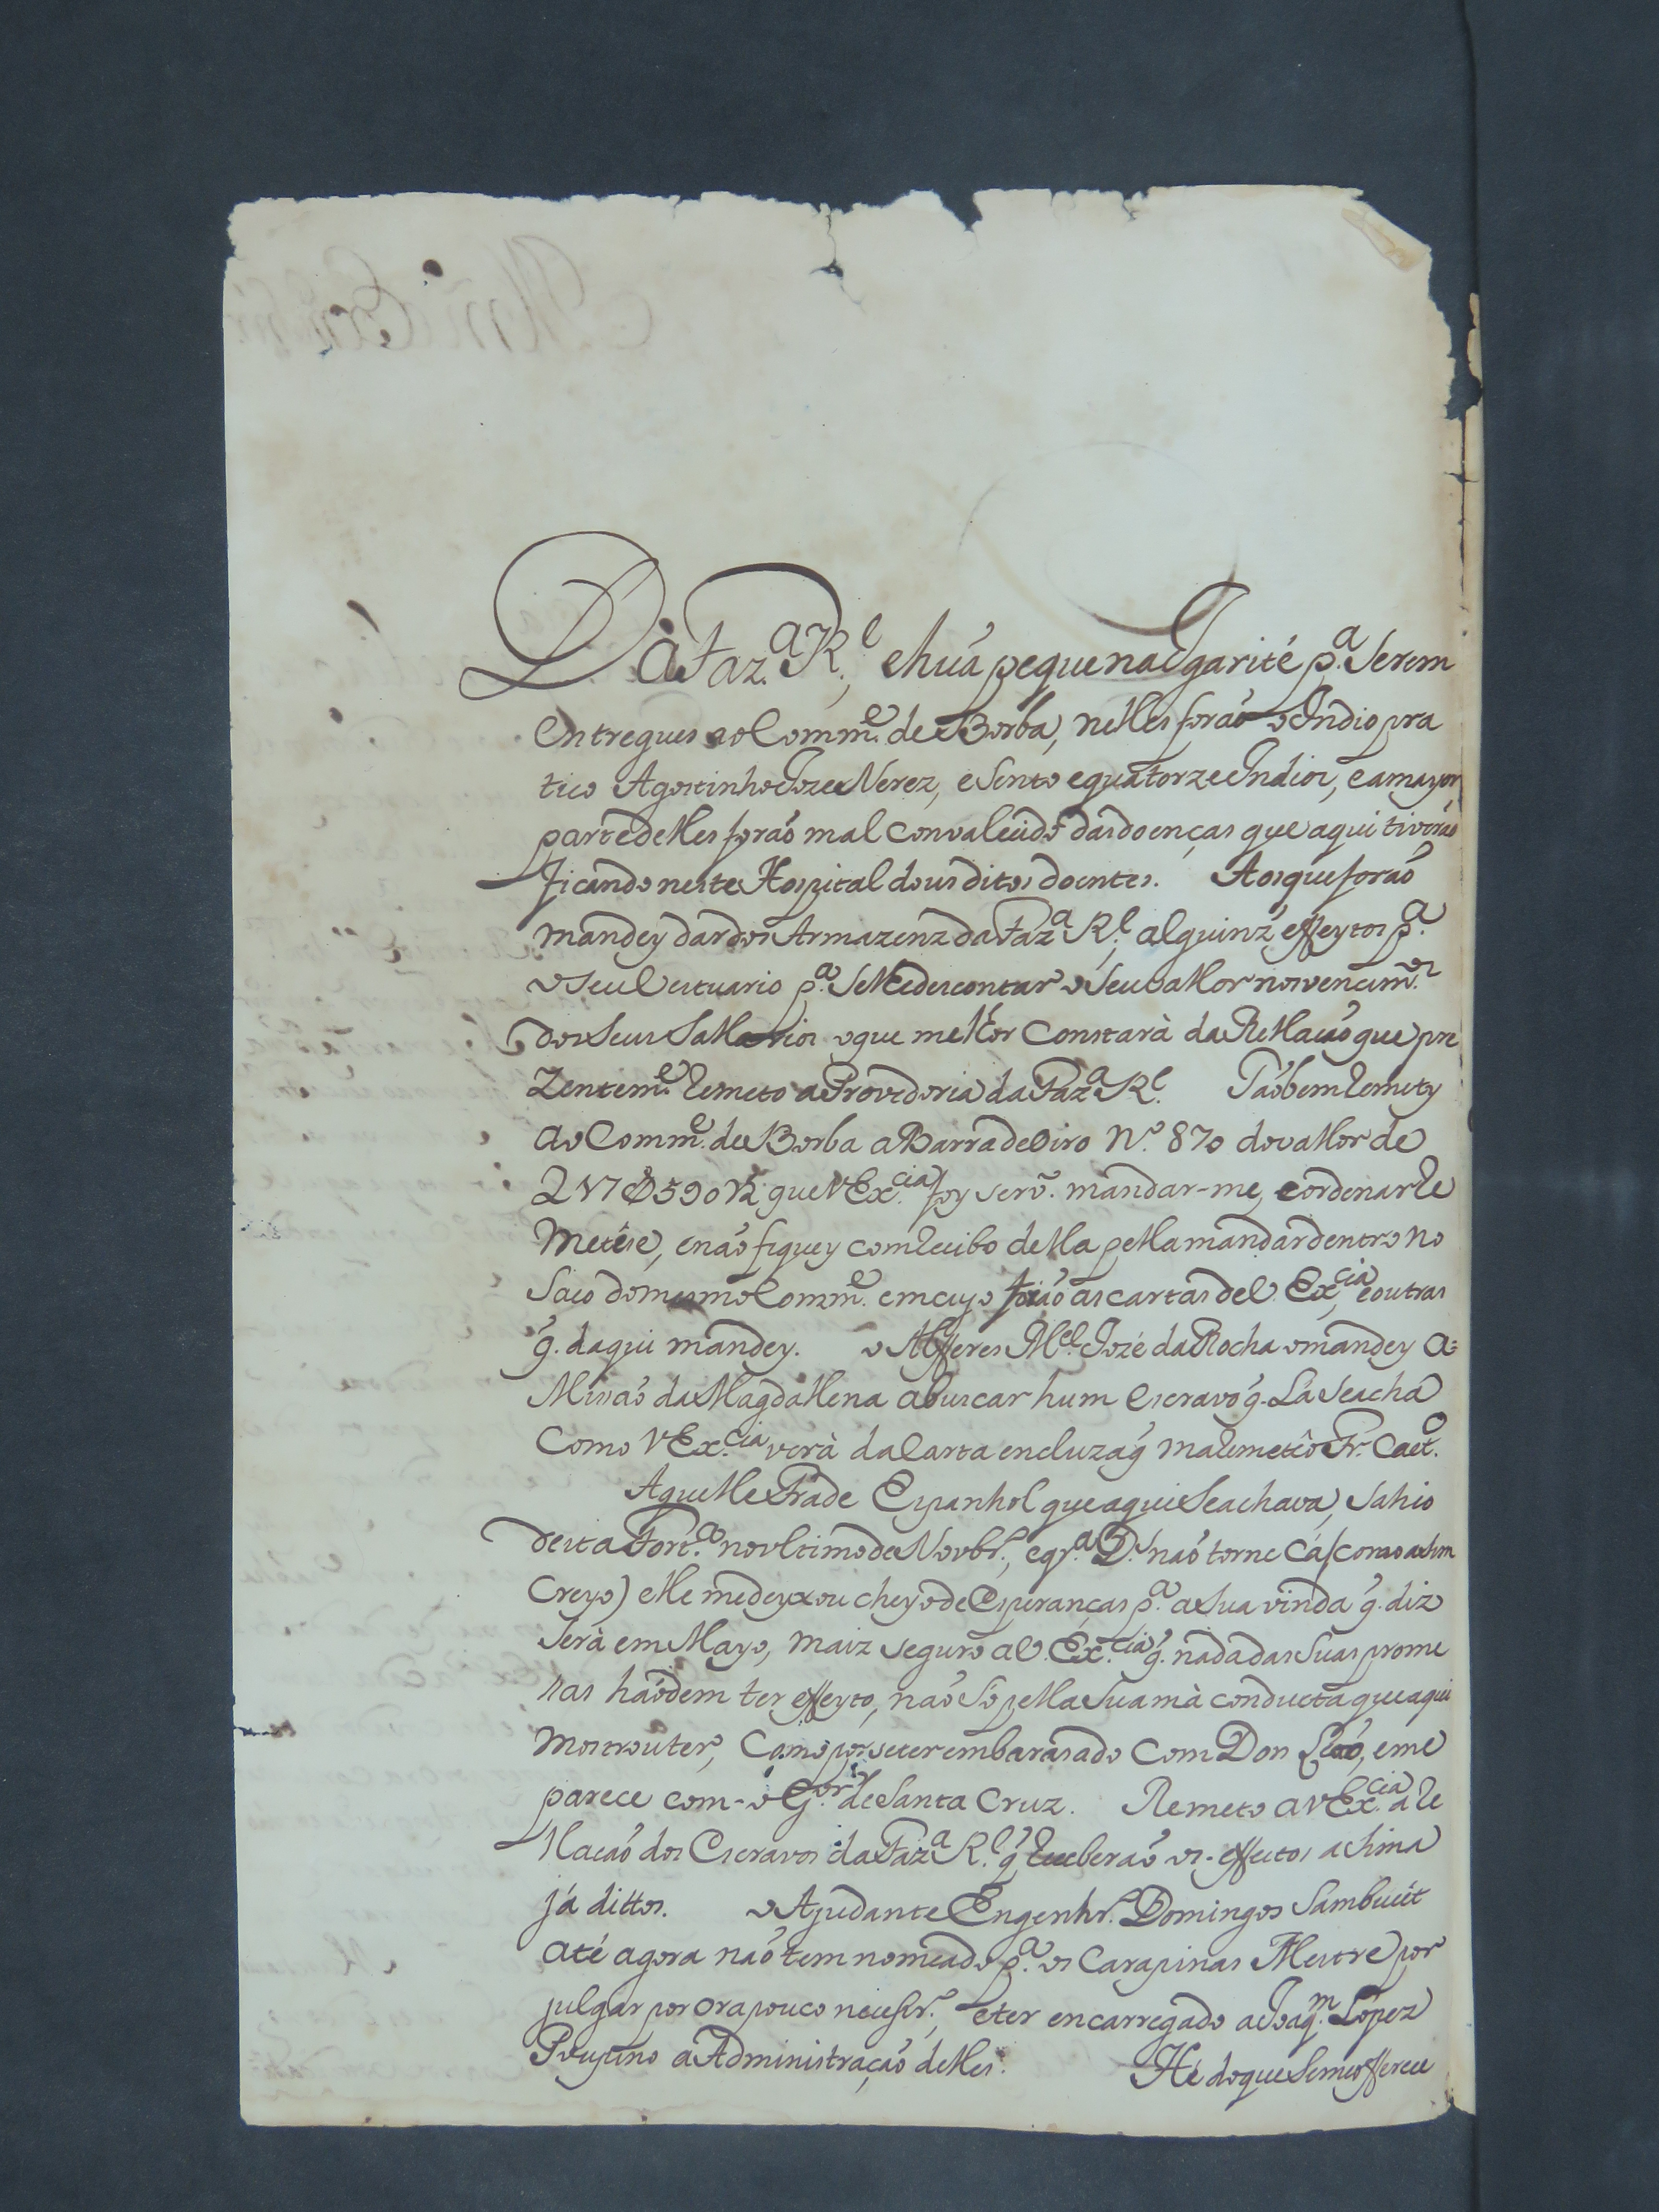 Da Faz.ª R.l, e huá pequena Igarité p.ª Serem
entregues ao Comm.e de Borba, nelles foraó o Indio pra
tico Agostinho Joze Nerez, e Sento e quatorze Indios, e a mayor
parte delles foraó mal convalecido das doenças que aqui tiveraó
ficando neste Hospital dous ditos doentes. Aos que foraó
mandey dar dos Armazenz da Faz.ª R.l alguinz effeytos p.ª
o seu Vestuario p.ª Se lhe descontar o Seu vallor nos vencim.os
dos Seus Sallarios o que melhor Constará da Rellacaó que pre
Zentem.e Remeto a Provedoria da Faz.ª R.l Taóbem Remety
ao Comm.e de Borba a Barra de Oiro N.º 870 do vallor de
217$590 rz que V Ex.cia foy serv.º mandar-me, e ordenar Re
Metêse, e náo fiquey com Recibo della pella mandar dentro no
Saco do mesmo Comm.e em cujo foraó as cartas de V. Ex.cia, e outras
q. daqui mandey. o Alfferes M.el Jozé da Rocha o mandey a=
Missaó da Magdallena a buscar hum escravo q. Lá Se achá
Como V Ex.cia verá da Carta encluza q ma Remetêo Fr. Caet.º
Aquelle Frade Espanhol que aqui Se achava, Sahio
desta Fort.ª no vltimo de Novbr.º, e qr.ª D.s naó torne Cá (como asim
Creyo) elle me deyxou cheyo de Esperanças p.ª a Sua vinda q. diz
Será em Mayo, maiz seguro a V. Ex.cia q. nada das Suas prome
sas haódem ter effeyto, naó Só pella Sua má conducta que aqui
Mostrou ter, Como por se ter embarasado Com Don Leaó, e me
parece com-o G.or de Santa Cruz. Remeto a V Ex.cia a Re
llacaó dos Escravos da Faz.ª R.l q Receberaó os-effeitos a Sima
já dittos. o Ajudante Engenhr.º Domingos Sambucet
até agora naó tem nomeado p.ª os Carapinas Mestre por
julgar por ora pouco necessr.º, e ter encarregado a Joaq.m Lopez
a Administraçaó delles. Hé do que Se me offerece